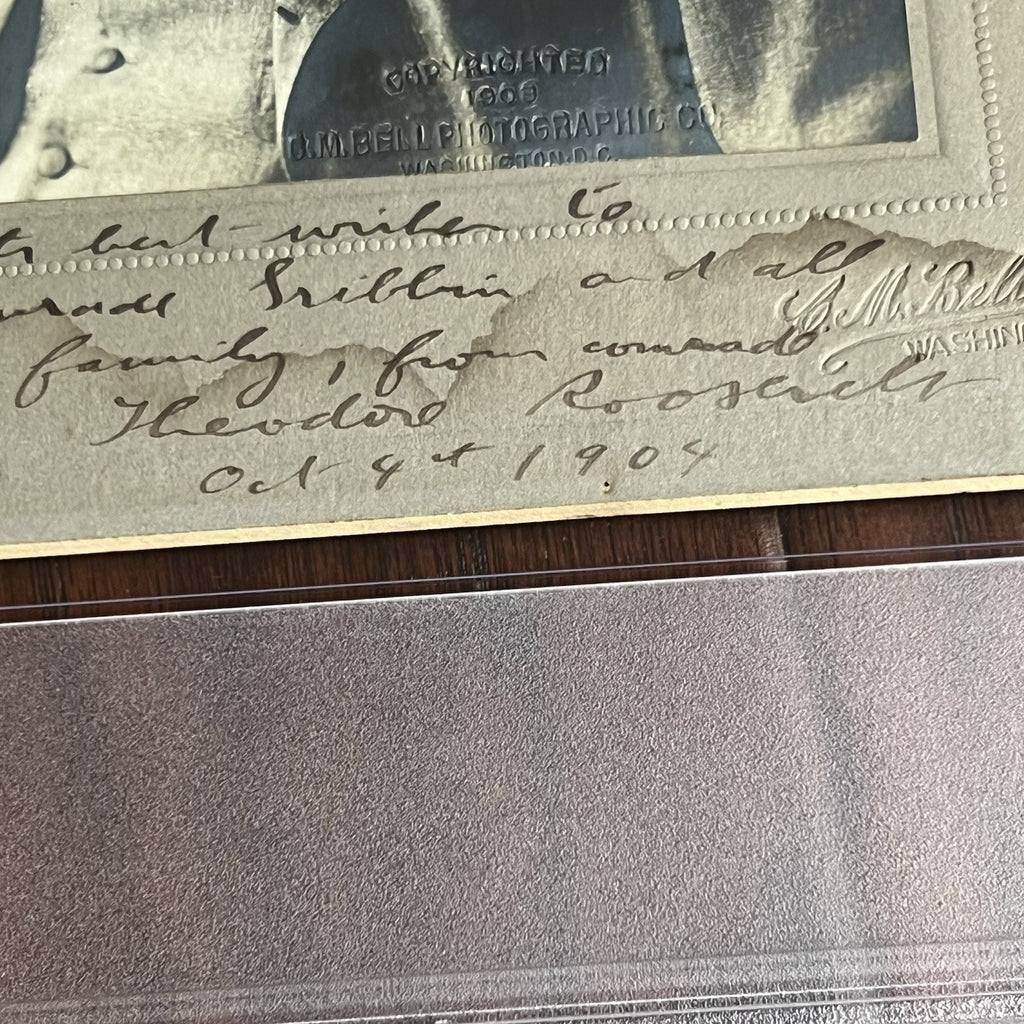 COPYRIGHTED
1903
C.M. BELL PHOTOGRAPHIC CO.
WASHINGTON, D.C.
best-wishes to
and all
C. M. Bell
WASHIN
family, from comrade
Theodore Roosevelt
Oct 4th 1904